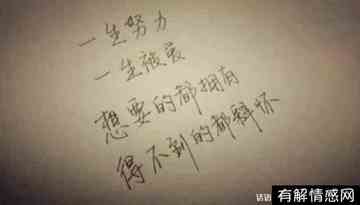 一生努力
一生被爱
想要的都拥有
得不到的都释怀
有解情感网